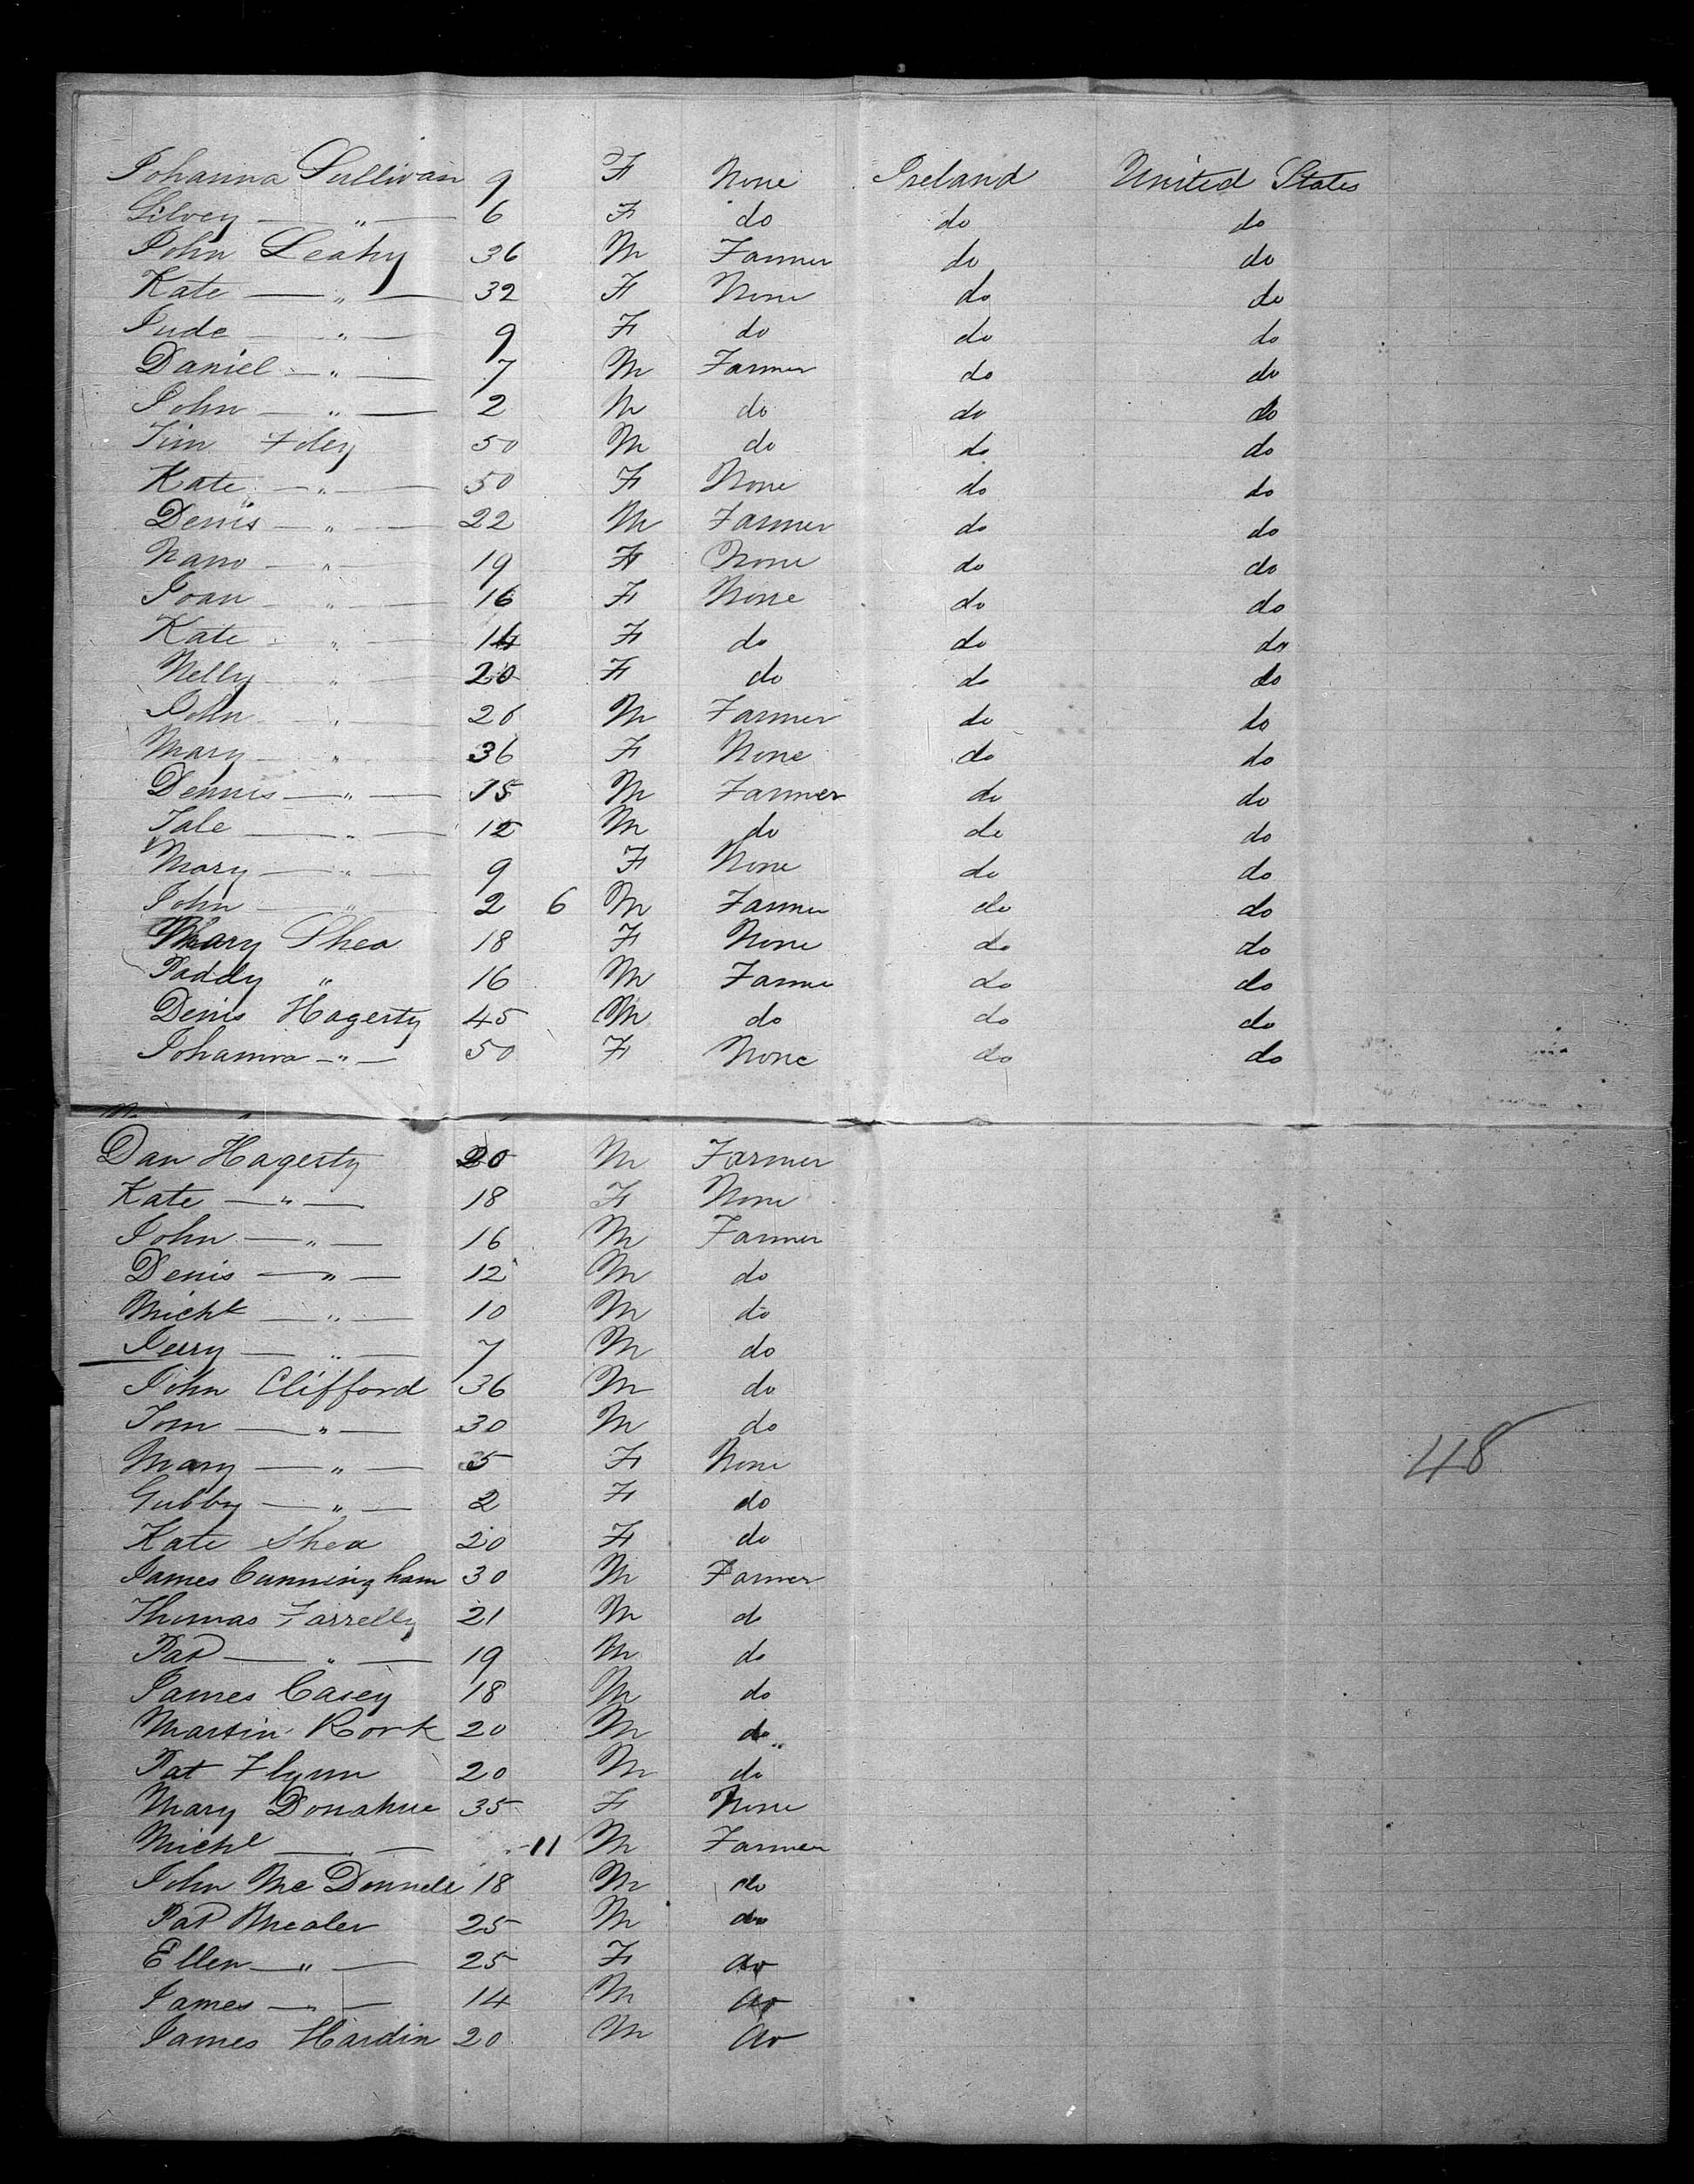 Johanna Sullivan 9 F None Ireland United States
Silvey — " — 6 F do do do
John Leahy 36 M Farmer do do
Kate — " — 32 F None do do
Jude — " — 9 F do do do
Daniel — " — 7 M Farmer do do
John — " — 2 M do do do
Tim Foley 50 M do do do
Kate — " — 50 F None do do
Denis — " — 22 M Farmer do do
Nano — " — 19 F None do do
Joan — " — 16 F None do do
Kate — " — 14 F do do do
Nelly — " — 20 F do do do
John — " — 26 M Farmer do do
Mary — " — 36 F None do do
Dennis — " — 15 M Farmer do do
Tale — " — 12 M do do do
Mary — " — 9 F None do do
John — " — 2 6 M Farmer do do
Mary Shea 18 F None do do
Paddy " 16 M Farme do do
Denis Hagerty 45 M do do do
Johanna — " — 50 F None do do
Dan Hagerty 20 M Farmer
Kate — " — 18 F None
John — " — 16 M Farmer
Denis — " — 12 M do
Michl — " — 10 M do
Jerry — " — 7 M do
John Clifford 36 M do
Tom — " — 30 M do
Mary — " — 5 F None
48
Gubby — " — 2 F do
Kate Shea 20 F do
James Cunningham 30 M Farmer
Thomas Farrelly 21 M do
Pat — " — 19 M do
James Casey 18 M do
Martin Rork 20 M do
Pat Flynn 20 M do
Mary Donahue 35 F None
Michl — — 11 M Farmer
John Mc Donnell 18 M do
Pat Mealer 25 M do
Ellen — " — 25 F do
James — " — 14 M do
James Hardin 20 M do